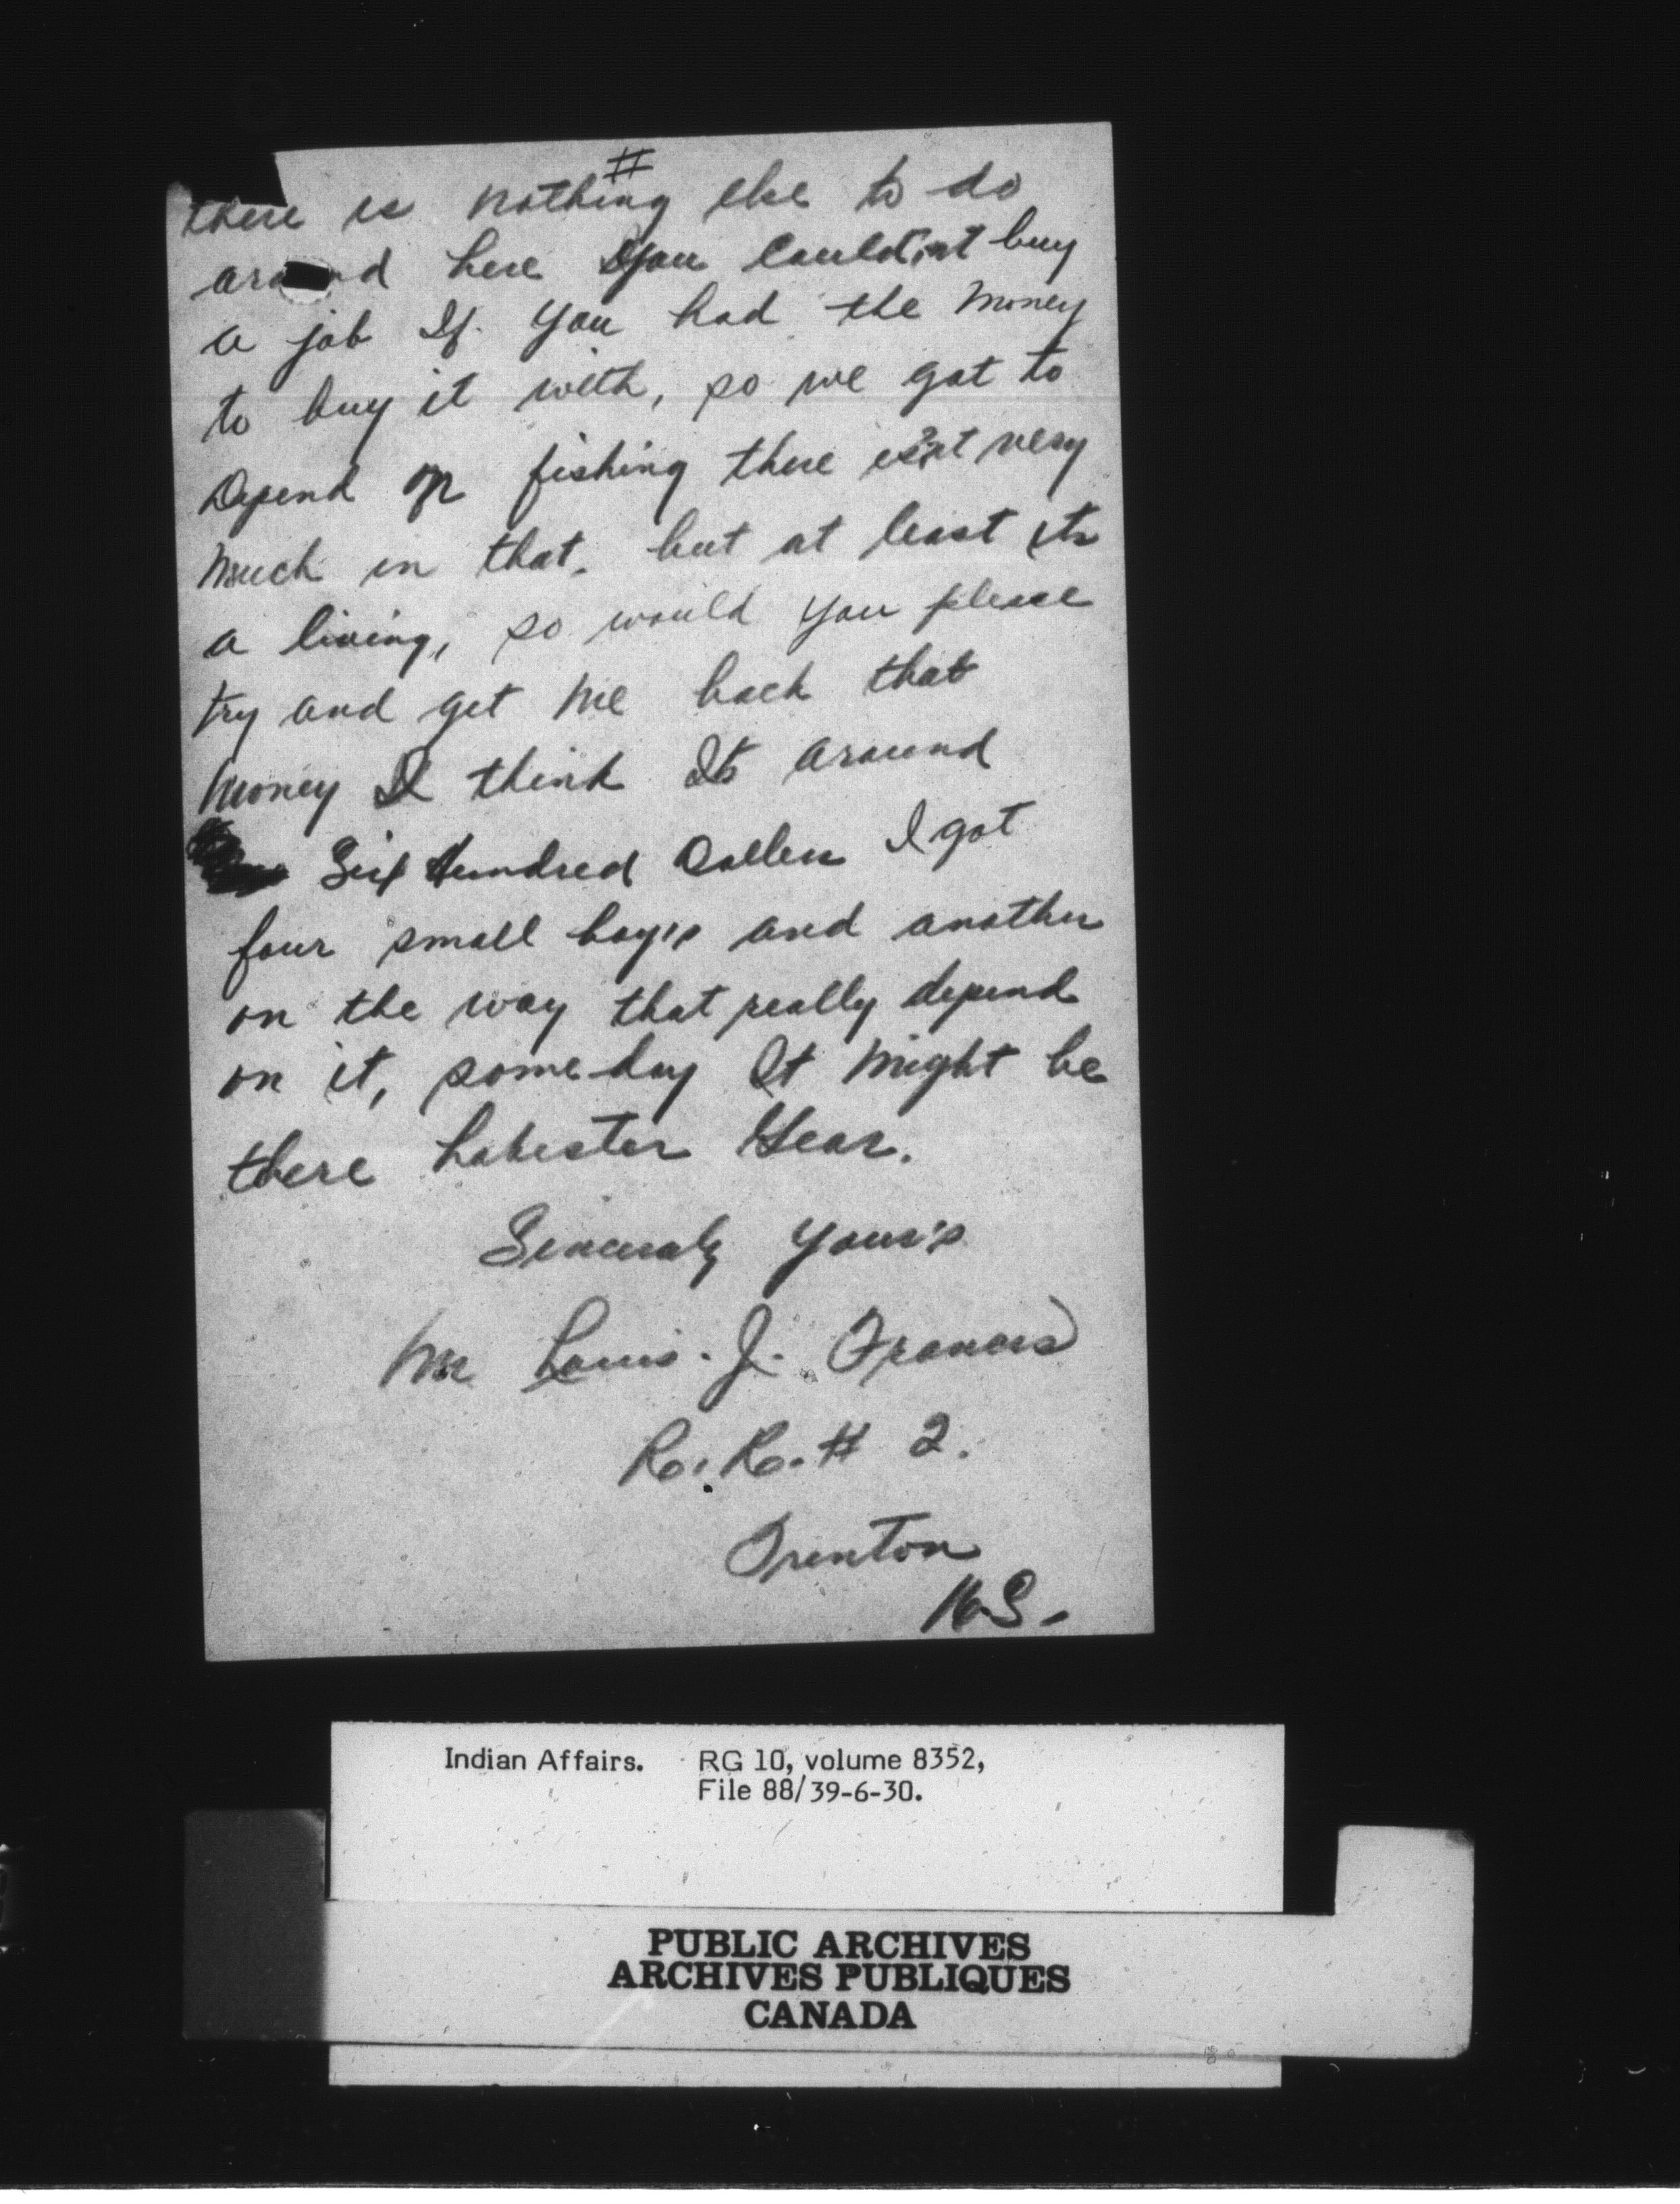 #
there is nothing else to do
around here you could'nt buy
a job If you had the money
to buy it with, so we got to
Depend on fishing there is'nt very
much in that, but at least its
a living, so would you please
try and get me back that
money I think Its around
Six Hundred Dollers I got
four small boy's and another
on the way that really depend
on it, someday It might be
there Lobester Gear.
Sincerely Your's
Mr Louis. J. Francis
R.R. # 2.
Trenton
N.S.
Indian Affairs. RG 10, volume 8352,
File 88/39-6-30.
PUBLIC ARCHIVES
ARCHIVES PUBLIQUES
CANADA